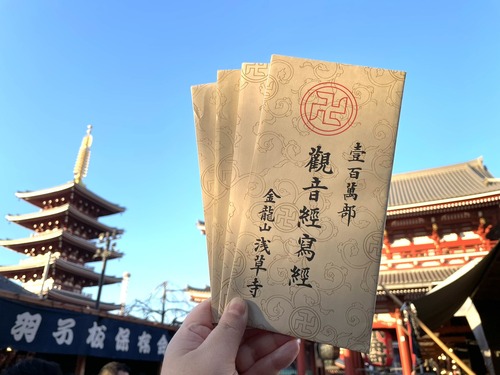 壹百萬部
觀音經寫經
金龍山 浅草寺
羽子板保存会